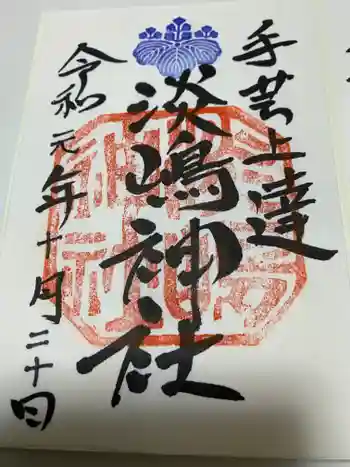 手芸上達
淡嶋神社
令和元年十一月二十日